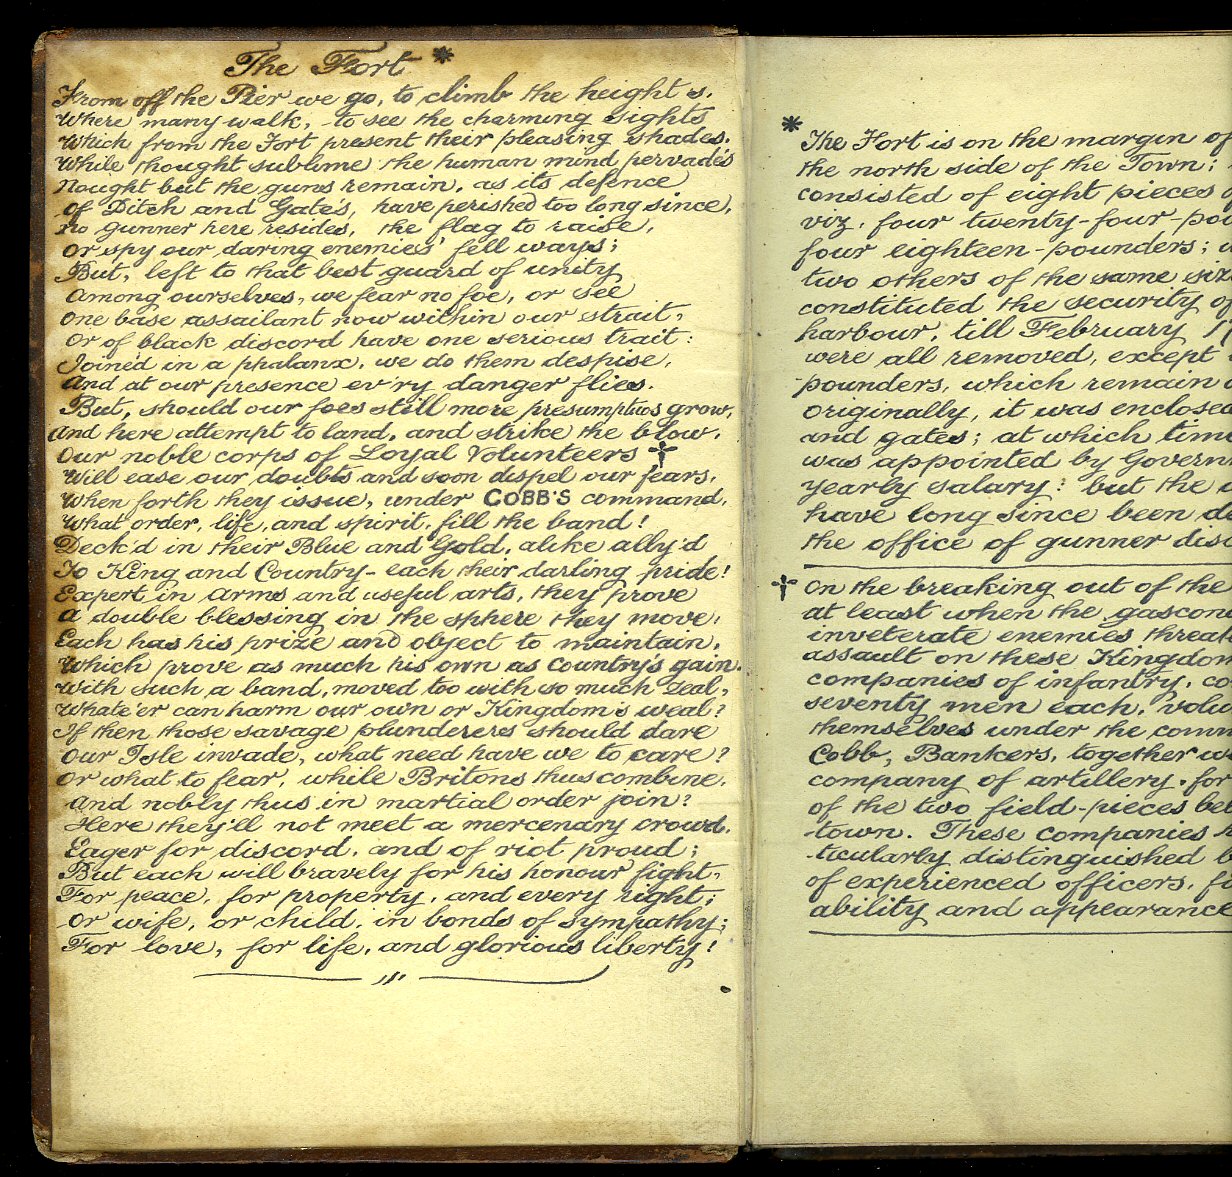 The Fort *
From off the Pier we go, to climb the heights.
Where many walk, to see the charming sights
Which from the Fort present their pleasing shades.
While thought sublime the human mind pervades
Nought but the guns remain, as its defence
of Ditch and Gate's, have perished too long since,
no gunner here resides, the flag to raise,
or spy our daring enemies' fell ways;
But, left to that best guard of unity
Among ourselves, we fear no foe, or see
one base assailant now within our strait,
Or of black discord have one serious trait:
Joined in a phalanx, we do them despise,
And at our presence ev'ry danger flies.
But, should our foes still more presumptuos grow,
And here attempt to land, and strike the blow,
Our noble corps of Loyal Volunteers †
Will ease our doubts and soon dispel our fears,
When forth they issue, under COBB'S command,
What order, life, and spirit, fill the band!
Deck'd in their Blue and Gold, alike ally'd
To King and Country - each their darling pride!
Expert in arms and useful arts, they prove
a double blessing in the sphere they move,
Each has his prize and object to maintain,
Which prove as much his own as country's gain.
With such a band, moved too with so much zeal,
Whate'er can harm our own or Kingdom's weal?
If then those savage plunderers should dare
Our Isle invade, what need have we to care?
Or what to fear, while Britons thus combine,
And nobly thus in martial order join?
Here they'll not meet a mercenary crowd,
Eager for discord, and of riot proud;
But each will bravely for his honour fight,
For peace, for property, and every right;
or wife, or child, in bonds of Sympathy;
For love, for life, and glorious liberty!
* The Fort is on the margin of
the north side of the Town;
consisted of eight pieces
viz. four twenty-four-pou
four eighteen-pounders;
two others of the same siz
constituted the security of
harbour, till February 17
were all removed, except
pounders, which remain
originally, it was enclosed
and gates; at which time
was appointed by Governm
yearly salary: but the
have long since been de
the office of gunner disc
† On the breaking out of the
at least when the gascon
inveterate enemies threat
assault on these Kingdom
companies of infantry, co
seventy men each, volu
themselves under the comm
Cobb, Bankers, together w
company of artillery, for
of the two field-pieces be
-town. These companies
-ticularly distinguished b
of experienced officers, f
ability and appearance